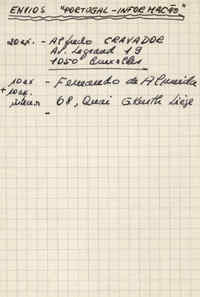 ENVIOS "PORTUGAL-INFORMAÇÃO"
20 ex. - Alfredo CRAVADOR
Av. Legrand 19
1050 Bruxelles
10 ex - Fernando de Almeida
+ 10 ex.
68, Quai Liège
-